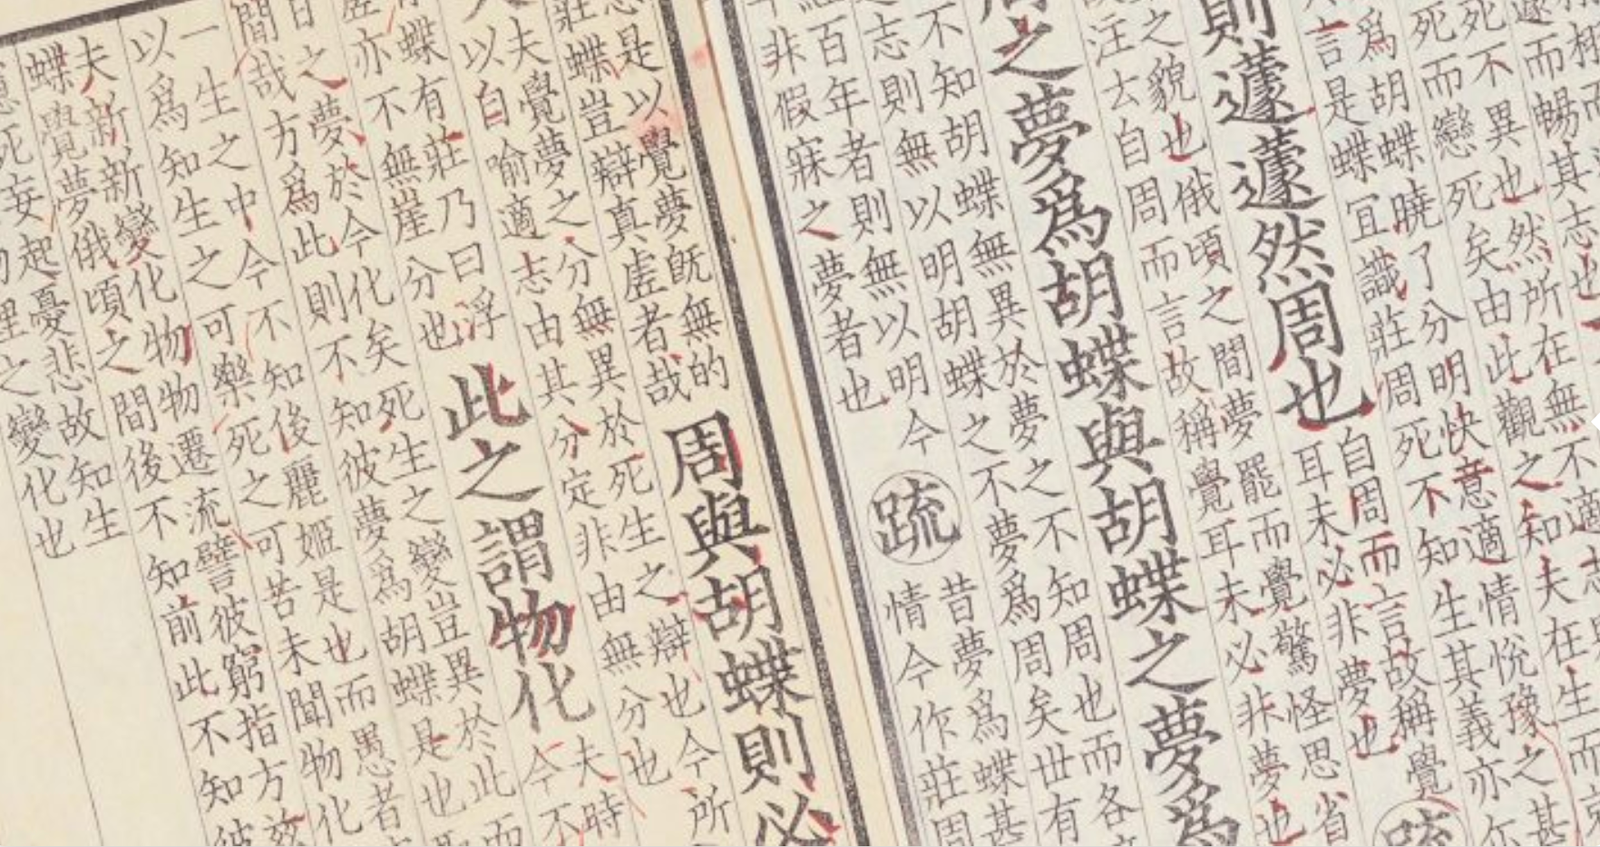 遂而暢其志也
死不異也然所在無不適志
死而戀死矣由此觀之知夫在生而
爲胡蝶曉了分明快意適情悅豫之甚
言是蝶宜識莊周死不知生其義亦
則蘧蘧然周也
自周而言故稱覺
耳未必非夢也
疏
之貌也俄頃之間夢罷而覺驚怪思省
汪去自周而言故稱覺耳未必非夢也
之夢爲胡蝶與胡蝶之夢爲
不知胡蝶無異於夢之不知周也而各
志則無以明胡蝶之不夢爲周矣世有
百年者則無以明今
非假寐之夢者也
疏
昔夢爲蝶甚
情今作莊周
是以覺夢旣無的
莊蝶豈辯真虛者哉
周與胡蝶則必
夫覺夢之分無異於死生之辯也今所
以自喻適志由其分定非由無分也
蝶有莊乃曰浮
亦不無崖分也
此之謂物化
夫時
今不
之夢於今化矣死生之變豈異於此而
間哉方爲此則不知彼夢爲胡蝶是也
一生之中今不知後麗姬是也而愚者
以爲知生之可樂死之可苦未聞物化
夫新新變化物物遷流譬彼窮指方茲
蝶覺夢俄頃之間後不知前此不知彼
起憂悲故知生
死妄理之變化也